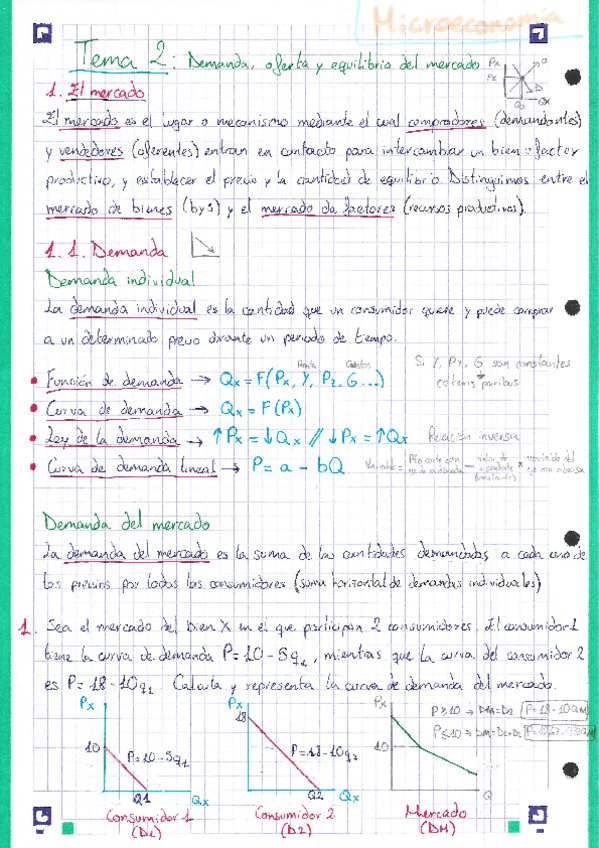 Microeconomía
Tema 2: Demanda, oferta y equilibrio del mercado
Px
Px
O
D
Qx
Qx
1. El mercado
El mercado es el lugar o mecanismo mediante el cual compradores (demandantes)
y vendedores (oferentes) entran en contacto para intercambiar un bien o factor
productivo, y establecer el precio y la cantidad de equilibrio. Distinguimos entre el
mercado de bienes (bys) y el mercado de factores (recursos productivos).
1.1. Demanda
Demanda individual
La demanda individual es la cantidad que un consumidor quiere y puede comprar
a un determinado precio durante un periodo de tiempo.
Renta Gustos
Función de demanda → Qx = F(Px, Y, Pz, G...)
Si Y, Pz, G son constantes
ceteris paribus
Curva de demanda → Qx = F(Px)
Ley de la demanda → ↑Px = ↓Qx // ↓Px = ↑Qx Relación inversa
Curva de demanda lineal → P = a - bQ
Demanda del mercado
La demanda del mercado es la suma de las cantidades demandadas a cada uno de
los precios por todos los consumidores (suma horizontal de demandas individuales)
1. Sea el mercado del bien X en el que participan 2 consumidores. El consumidor 1
tiene la curva de demanda P = 10 - 5q1, mientras que la curva del consumidor 2
es P = 18 - 10q2. Calcula y representa la curva de demanda del mercado.
Px
10
P = 10 - 5q1
Q1
Qx
Consumidor 1
(D1)
Px
18
P = 18 - 10q2
Q2
Qx
Consumidor 2
(D2)
Px
10
Q
P ≥ 10 → DM = D2 P = 18 - 10QM
P ≤ 10 → DM = D1 + D2
Mercado
(DM)